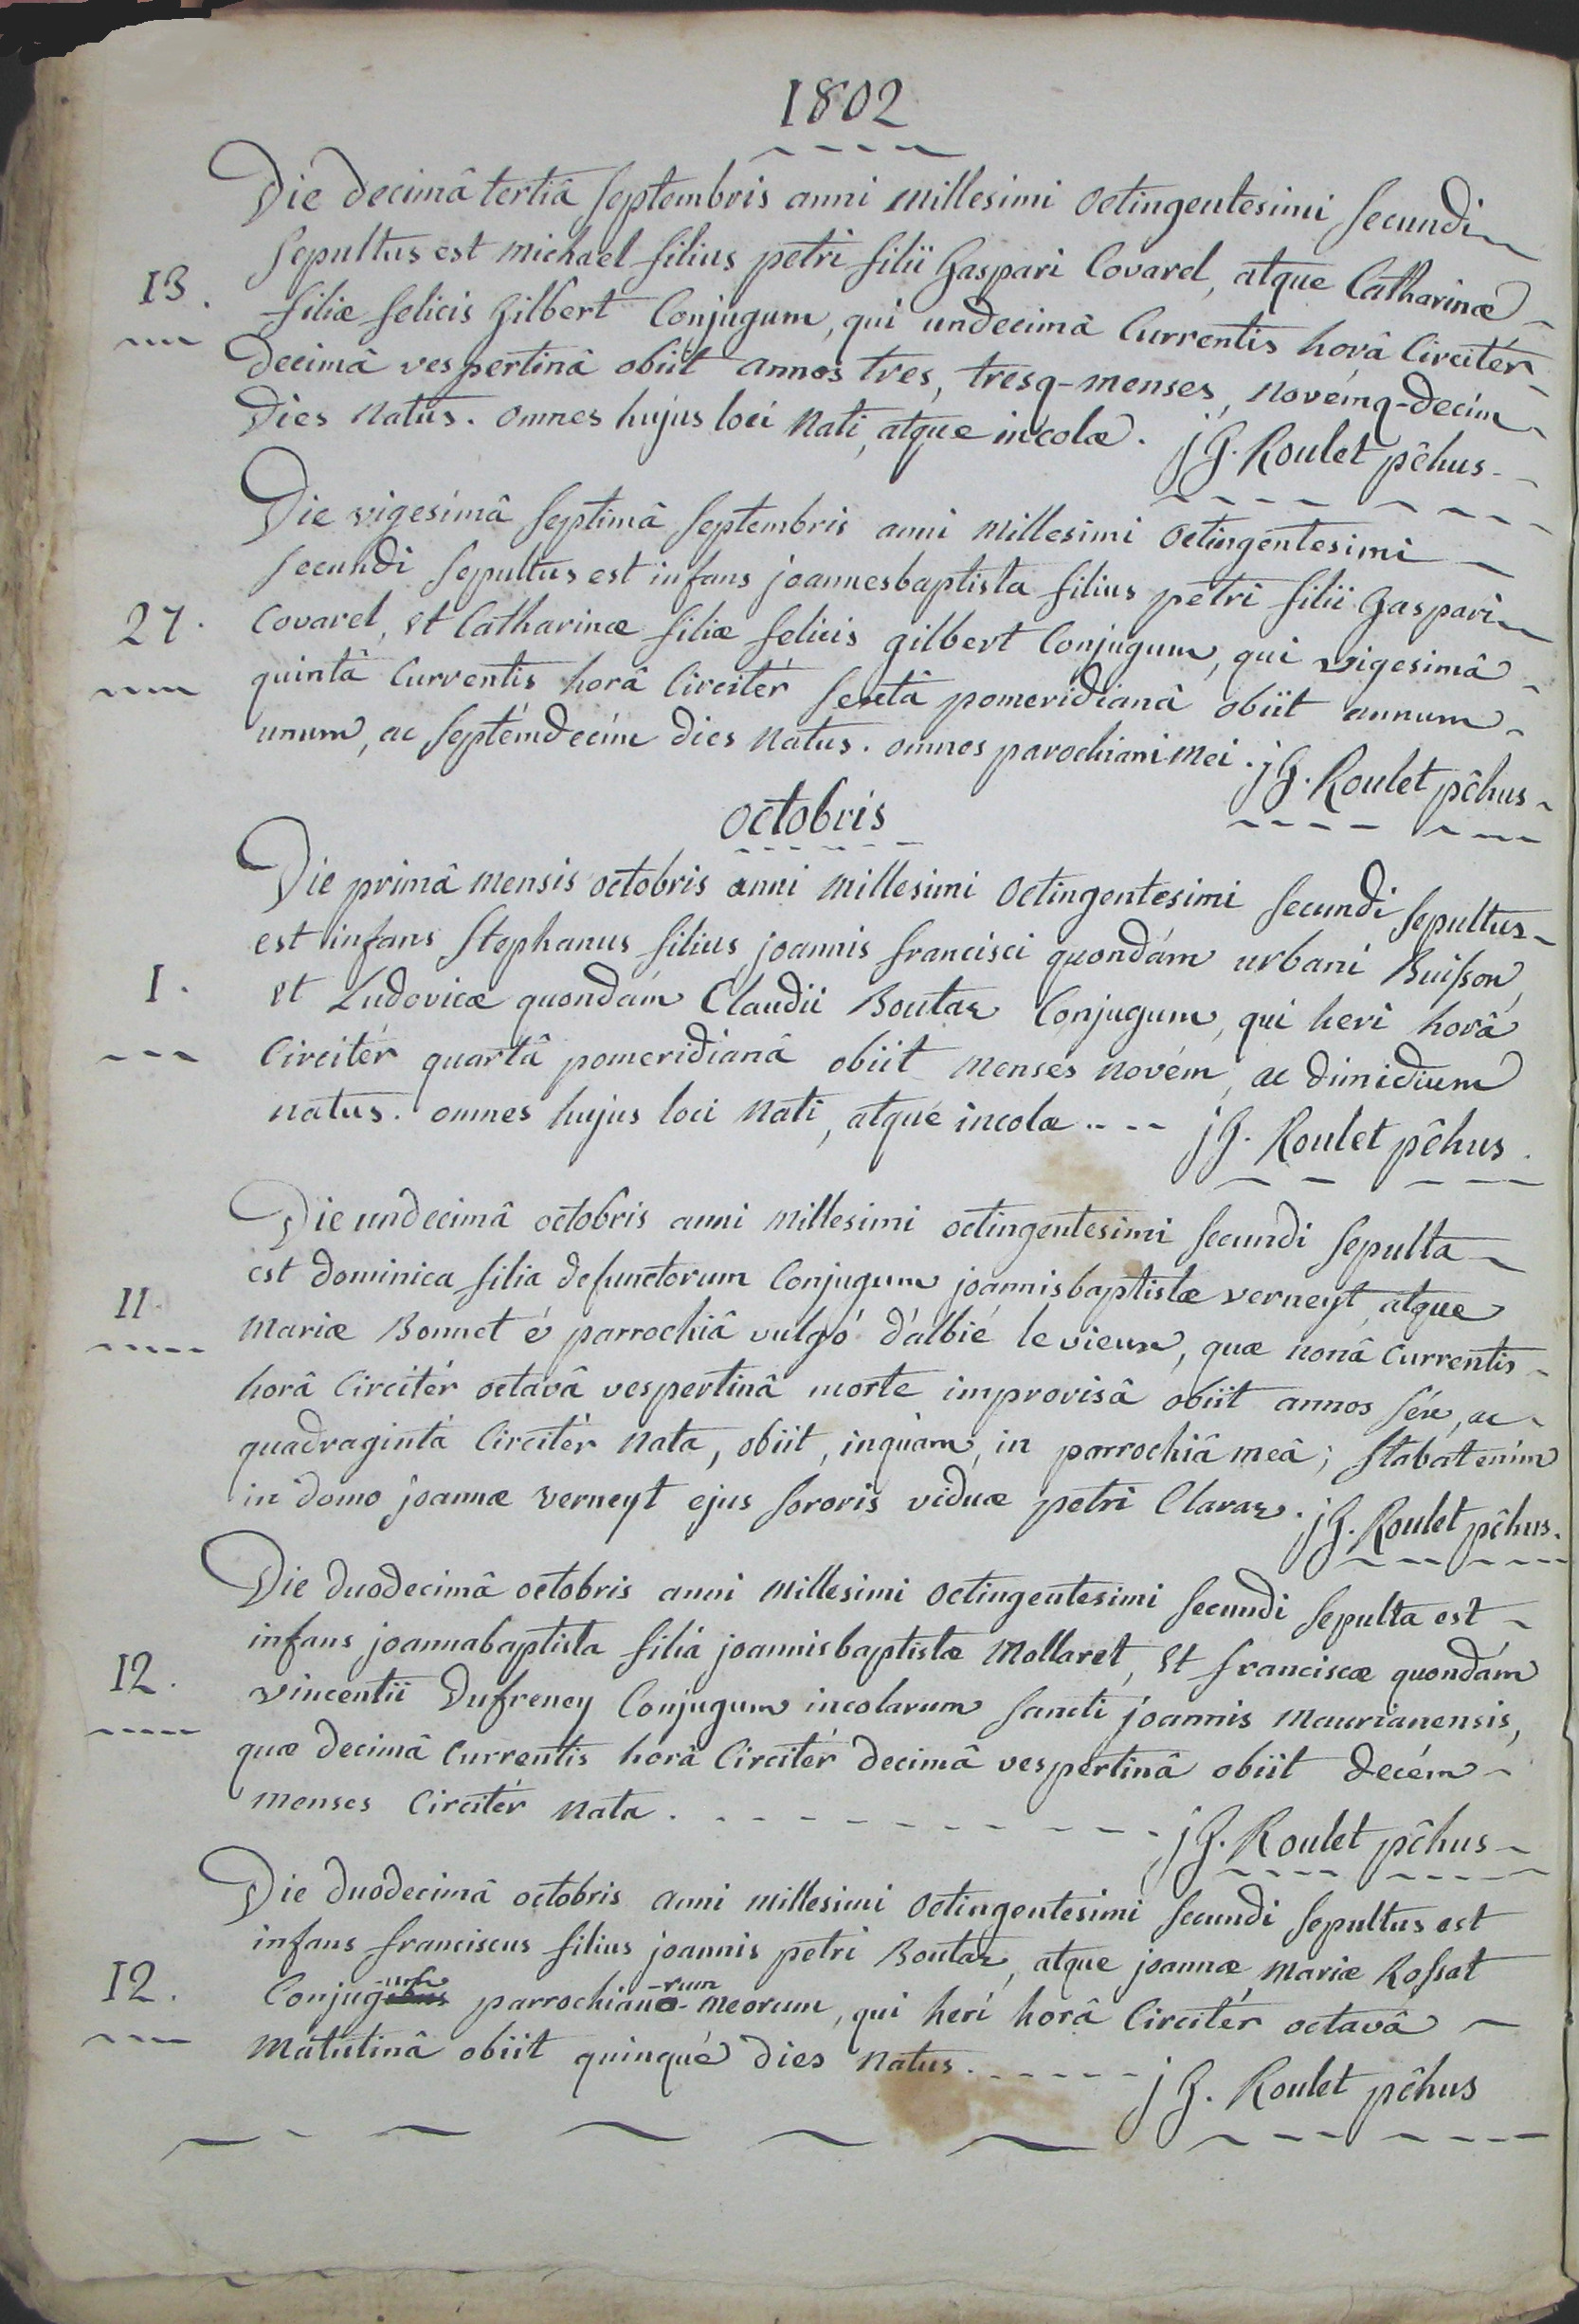 1802
Die decimâ tertiâ septembris anni millesimi octingentesimi secundi
sepultus est michael filius petri filii gaspari Covarel, atque Catharinæ
13.
filiæ felicis gilbert Conjugum, qui undecimâ Currentis horâ Circitér
decimâ vespertinâ obiit annos tres, tresq-menses, novémq-decím
dies natus. omnes hujus loci nati, atque incolæ. jg. Roulet pĉhus
Die vigesimâ septimâ septembris anni millesimi octingentesimi
secundi sepultus est infans joannesbaptista filius petri filii gaspari
27.
Covarel, et Catharinæ filiæ felicis gilbert Conjugum, qui vigesimâ
quintâ Currentis horâ Circitér sextâ pomeridianâ obiit annum
unum, ac septémdecím dies natus. omnes parochiani mei. jg. Roulet pĉhus
octobris
Die primâ mensis octobris anni millesimi octingentesimi secundi sepultus
est infans Stephanus filius joannis francisci quondám urbani Buisson,
1.
et Ludovicæ quondám Claudii Boutaz Conjugum, qui heri horâ
Circitér quartâ pomeridianâ obiit menses novém, ac dimidium
natus. omnes hujus loci nati, atqué incolæ.. -- jg. Roulet pĉhus.
Die undecimâ octobris anni millesimi octingentesimi secundi sepulta
est dominica filia defunctorum Conjugum joannisbaptistæ verneyt, atque
11.
mariæ Bonnet é parrochiâ vulgó d'albié le vieux, quæ nonâ Currentis
horâ Circitér octavâ vespertinâ morte improvisâ obiit annos séx, ac
quadragintá Circitér nata, obiit, inquam, in parrochiâ meâ; stabat ením
in domo joannæ verneyt ejus sororis viduæ petri Claraz. jg. Roulet pĉhus.
Die duodecimâ octobris anni millesimi octingentesimi secundi sepulta est
infans joannabaptista filia joannisbaptistæ Mollaret, et franciscæ quondám
12.
vincentii Dufreney Conjugum incolarum sancti joannis maurianensis,
quæ decimâ Currentis horâ Circitér decimâ vespertinâ obiit decém
menses Circitér nata. jg. Roulet pĉhus
Die duodecimâ octobris anni millesimi octingentesimi secundi sepultus est
infans franciscus filius joannis petri Boutaz, atque joannæ mariæ Rossat
12.
Conjugum parrochiano-rum meorum, qui heri horâ Circitér octavâ
matutinâ obiit quinqué dies natus. jg. Roulet pĉhus